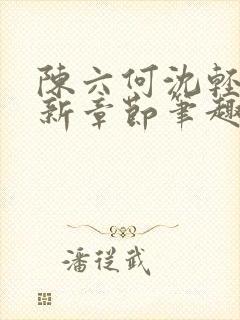 陳六何沈輕
新章節筆趣
潘從武